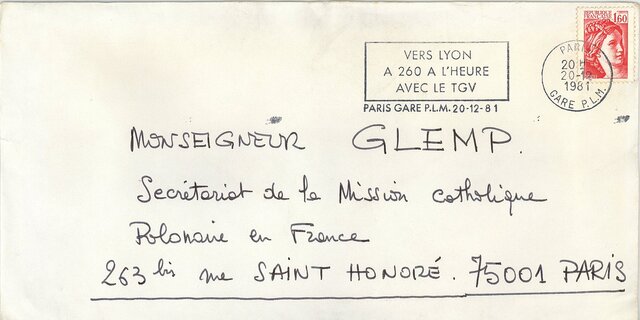 VERS LYON
A 260 A L'HEURE
AVEC LE TGV
PARIS GARE P.L.M. 20-12-81
REPUBLIQUE
FRANÇAISE
1,60
PARIS
20H
20-12
1981
GARE P.L.M.
MONSEIGNEUR GLEMP.
Secrétariat de la Mission catholique
Polonaise en France
263 bis rue SAINT HONORÉ. 75001 PARIS